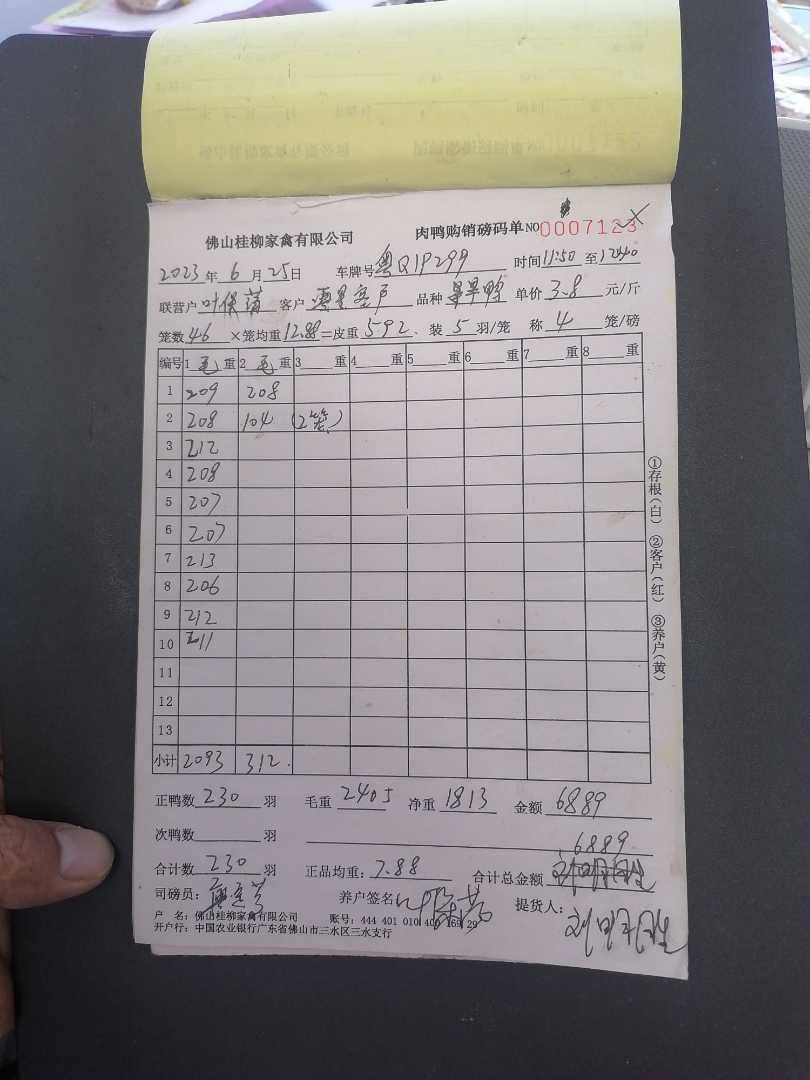 佛山桂柳家禽有限公司 肉鸭购销磅码单 NO 0007123
2023年6月25日 车牌号 粤Q1P299 时间 11:50 至 1240
联营户 叶保 客户 品种 鸭 单价 3.8 元/斤
笼数 46 ×笼均重 12.88 =皮重 592. 装 5 羽/笼 称 4 笼/磅
编号 1 毛 重 2 毛 重 3 重 4 重 5 重 6 重 7 重 8 重
1 209 208
2 208 104 (2笼)
3 212
4 208
5 207
6 207
7 213
8 206
9 212
10 211
11
12
13
小计 2093 312.
①存根(白) ②客户(红) ③养户(黄)
正鸭数 230 羽 毛重 2405 净重 1813 金额 6889
次鸭数 羽 6889
合计数 230 羽 正品均重: 7.88 合计总金额
司磅员: 养户签名 提货人:
户 名: 佛山桂柳家禽有限公司 账号: 444 401 010 40 169 29
开户行: 中国农业银行广东省佛山市三水区三水支行